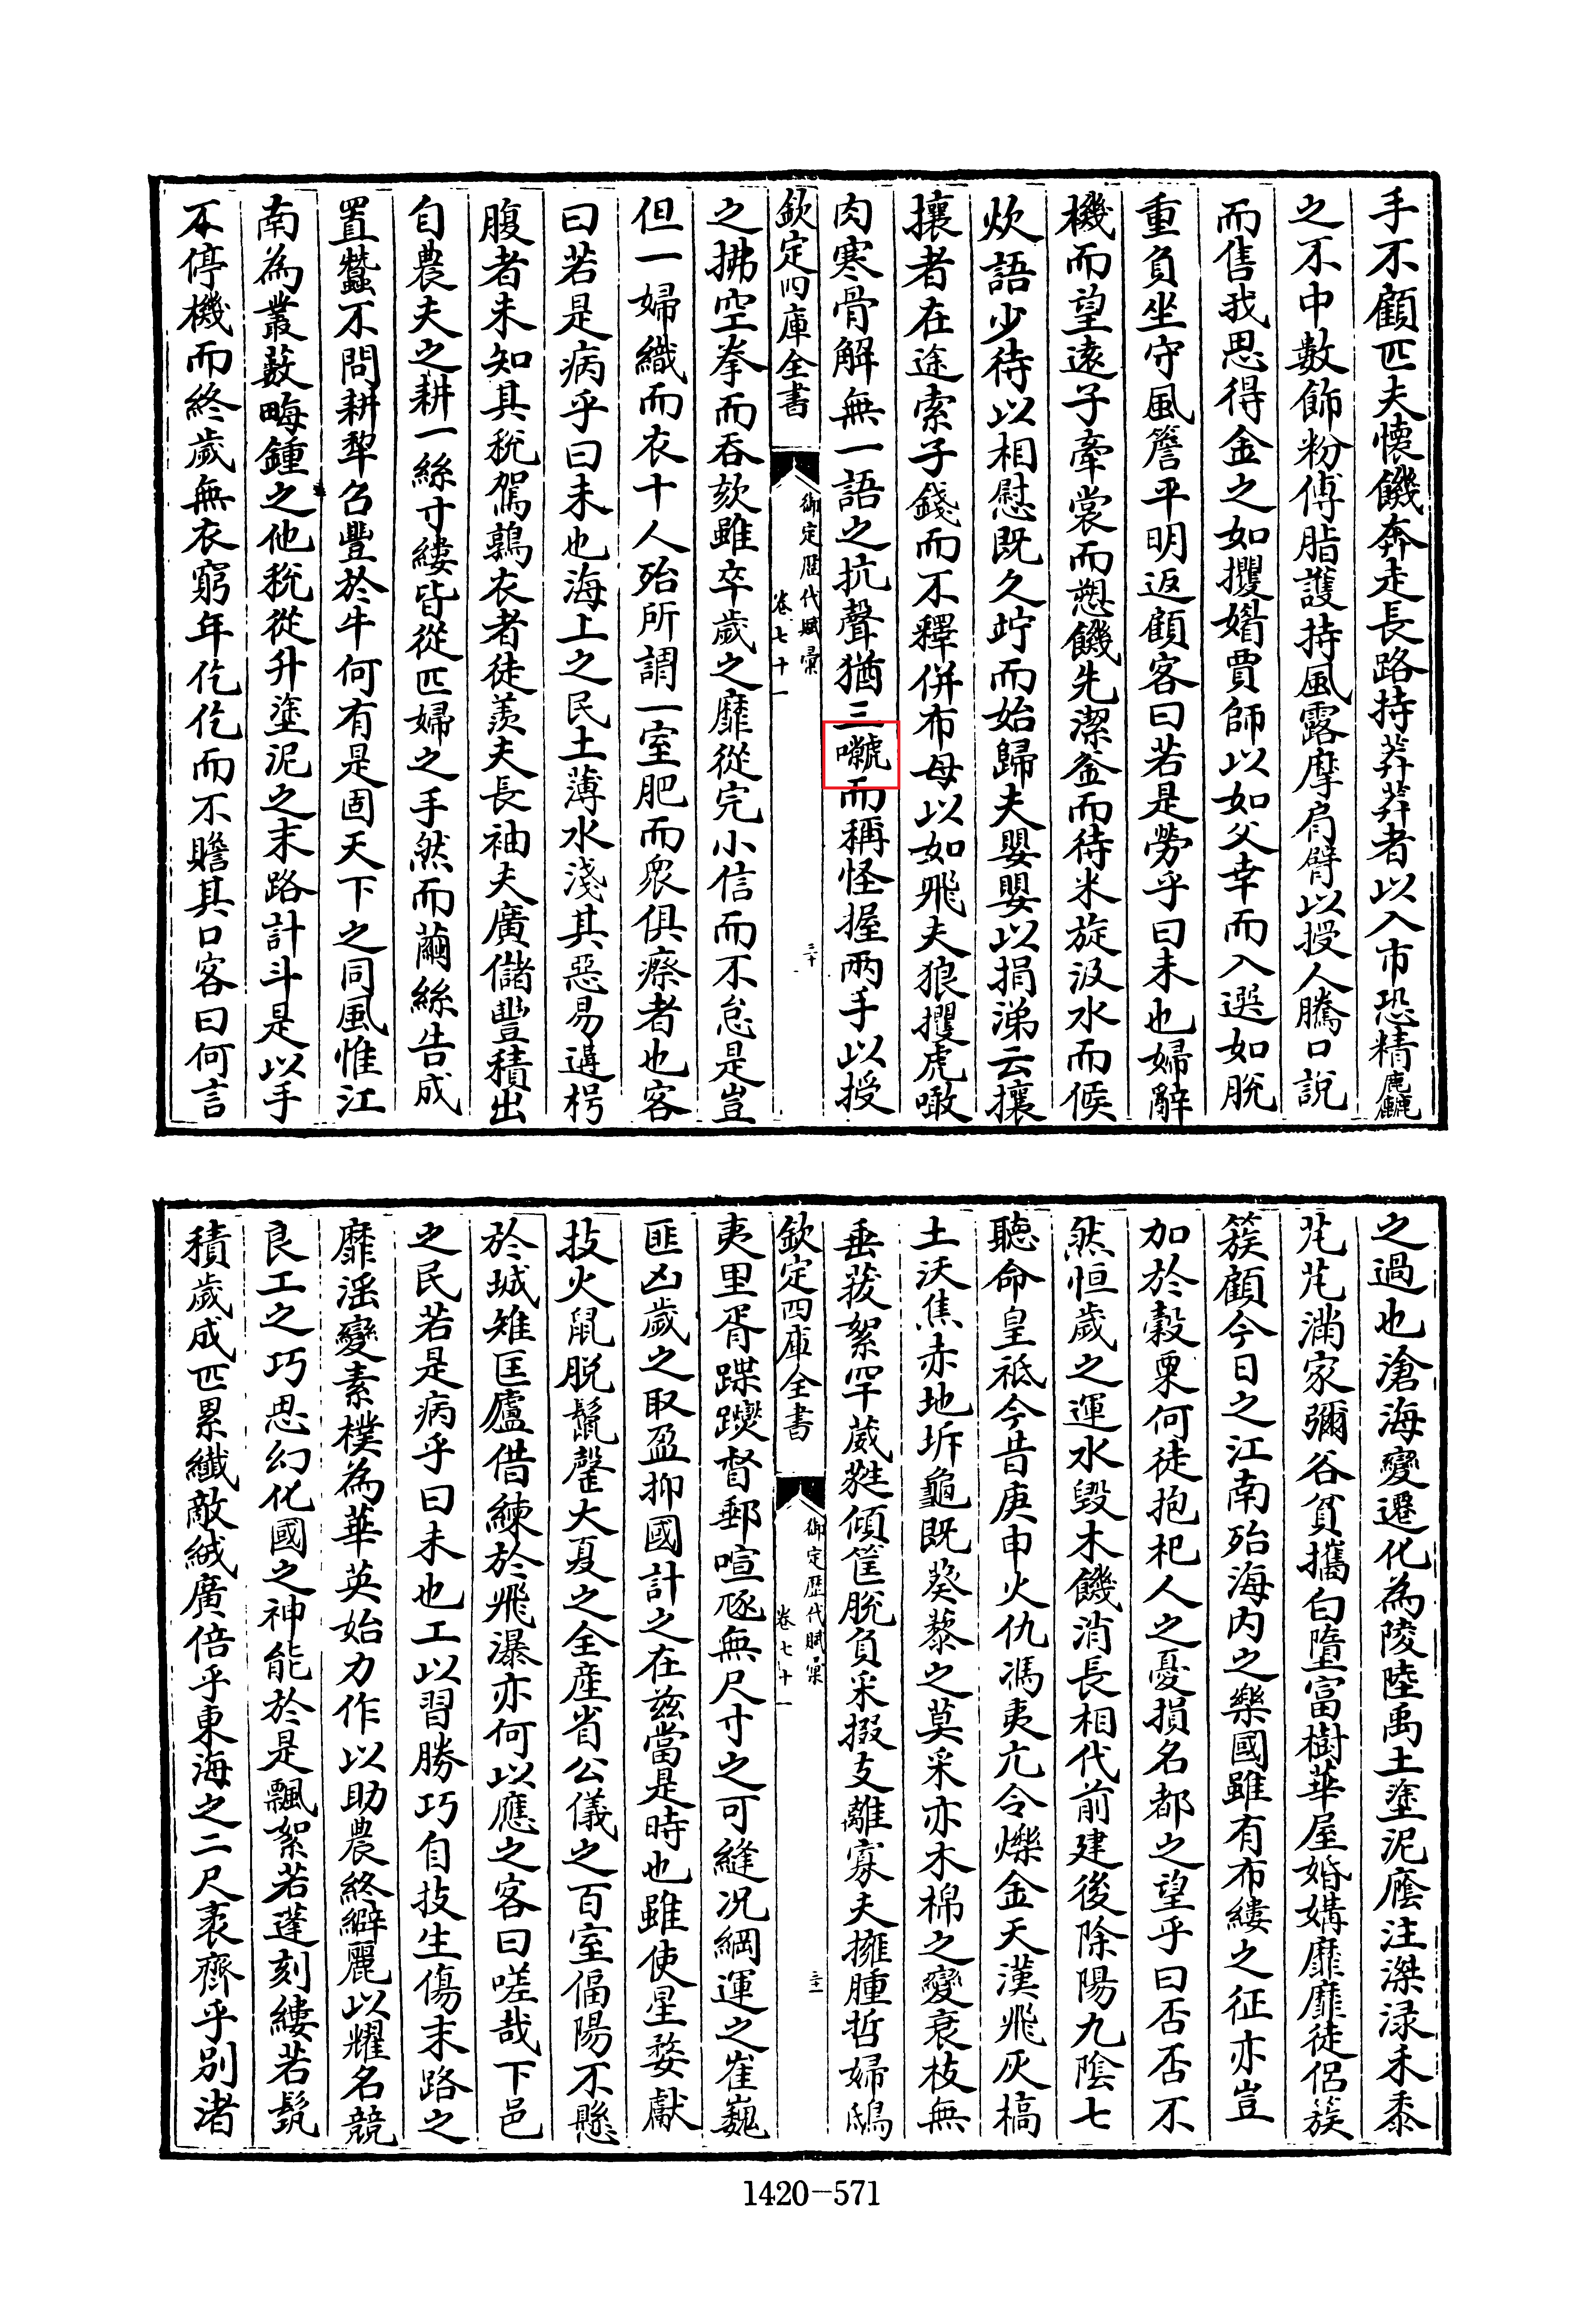 手不顧匹夫懷饑奔走長路持莽莽者以入市恐精麤
之不中數飾粉傅脂護持風露摩肩臂以授人騰口說
而售我思得金之如攫婿賈師以如父幸而入選如脫
重負坐守風簷平明返顧客曰若是勞乎曰未也婦辭
機而望遠子牽裳而愬饑先潔釜而待米旋汲水而候
炊語少待以相慰既久竚而始歸夫嬰嬰以捐涕云攘
攘者在途索子錢而不釋併布母以如飛夫狼攫虎噉
肉寒骨解無一語之抗聲猶三嗁而稱怪握兩手以授
欽定四庫全書
御定歴代賦彙
卷七十一
三十
之拂空拳而吞欬雖卒歲之靡從完小信而不怠是豈
但一婦織而衣十人殆所謂一室肥而衆俱瘵者也客
曰若是病乎曰未也海上之民土薄水淺其惡易遘枵
腹者未知其稅駕鶉衣者徒羨夫長袖夫廣儲豐積出
自農夫之耕一絲寸縷皆從匹婦之手然而繭絲告成
置蠶不問耕犂名豐於牛何有是固天下之同風惟江
南為叢藪畮鍾之他稅從升塗泥之末路計斗是以手
不停機而終歲無衣窮年仡仡而不贍其口客曰何言
之過也滄海變遷化為陵陸禹土塗泥廕注湙渌禾黍
芃芃滿家彌谷貧攜白墮富樹華屋婚媾靡靡徒侶簇
簇顧今日之江南殆海内之樂國雖有布縷之征亦豈
加於穀粟何徒抱杞人之憂損名都之望乎曰否否不
然恒歲之運水毀木饑消長相代前建後除陽九陰七
聽命皇祗今昔庚申火仇馮夷亢令爍金天漢飛灰槁
土沃焦赤地坼龜既葵藜之莫采亦木棉之變衰枝無
垂菝絮罕葳蕤傾筐脫負采掇支離寡夫擁腫哲婦鴟
欽定四庫全書
御定歴代賦彙
卷七十一
三十一
夷里胥蹀躞督郵喧豗無尺寸之可縫况綱運之崔巍
匪凶歲之取盈抑國計之在兹當是時也雖使星婺獻
技火鼠脱鬣罄大夏之全産省公儀之百室偪陽不懸
於城雉匡廬借練於飛瀑亦何以應之客曰嗟哉下邑
之民若是病乎曰未也工以習勝巧自技生傷末路之
靡滛變素樸為華英始力作以助農終繲麗以耀名競
良工之巧思幻化國之神能於是飄絮若蓬刻縷若髠
積歲成匹累纖敵絨廣倍乎東海之二尺袤齊乎别渚